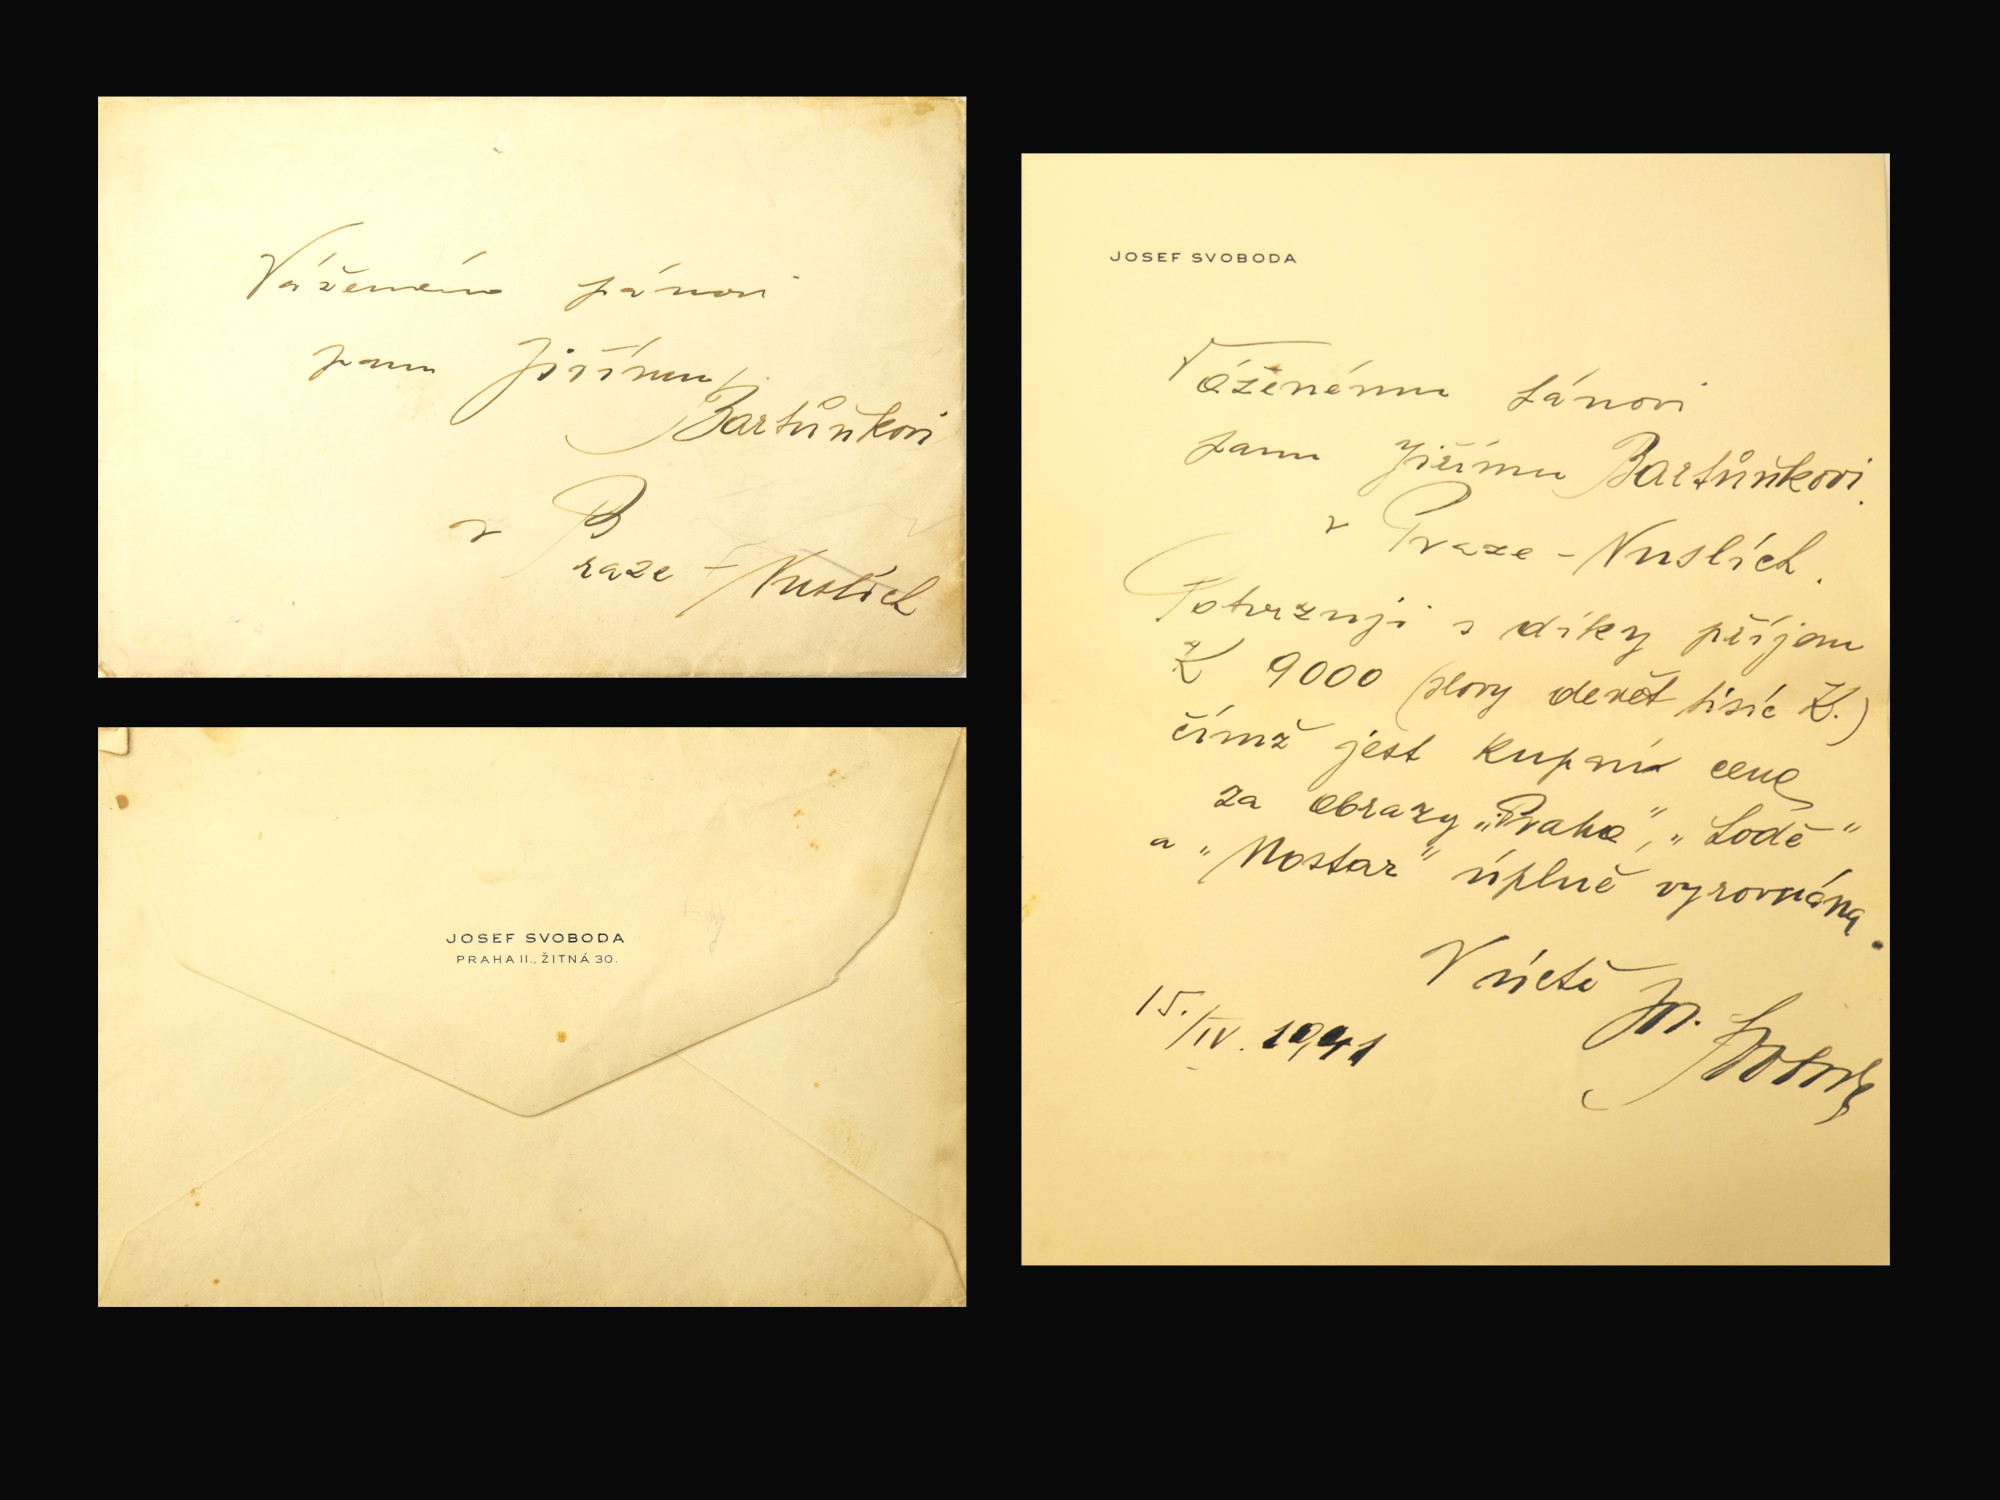 Váženému pánovi
panu Jiřímu
Bartůňkovi
v Praze - Nuslích
JOSEF SVOBODA
PRAHA II., ŽITNÁ 30.
JOSEF SVOBODA
Váženému pánovi
panu Jiřímu Bartůňkovi.
v Praze - Nuslích.
Potvrzuji s díky příjem
K 9000 (slovy devět tisíc K.)
čímž jest kupní cena
za obrazy „Praha", „Lodě"
a „Mostar" úplně vyrovnána.
V úctě
Jos. Svoboda
15./IV. 1941